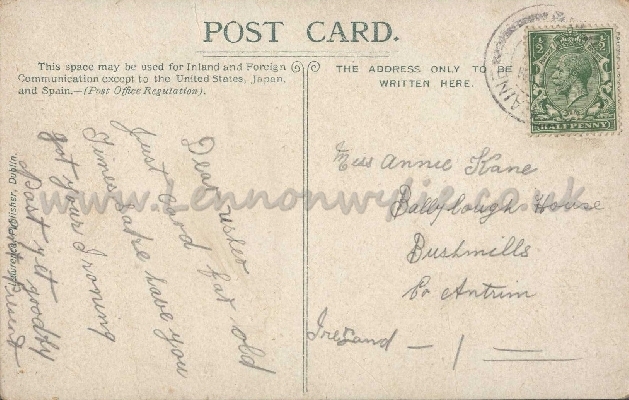 POST CARD.
This space may be used for Inland and Foreign
Communication except to the United States, Japan,
and Spain.—(Post Office Regulation).
THE ADDRESS ONLY TO BE
WRITTEN HERE.
HALFPENNY
Dear sister
Just card for old
Times sake have you
got your Ironing
past yt goodly
Miss Annie Kane
Ballylough House
Bushmills
Co Antrim
Ireland — 1 —
Lawrence, Publisher, Dublin.
www.Lennonwylie.co.uk